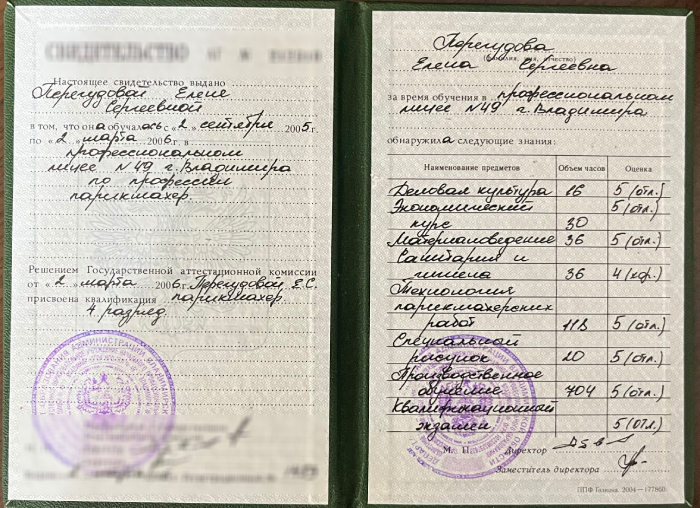 СВИДЕТЕЛЬСТВО
Настоящее свидетельство выдано
Перегудовой Елене
Сергеевной
в том, что она обучалась с «2» сентября 2005 г.
по «2» марта 2006 г. в
профессиональном
лицее №49 г. Владимира
по профессии
парикмахер.
Решением Государственной аттестационной комиссии
от «2» марта 2006 г. Перегудовой Е.С.
присвоена квалификация парикмахер.
4 разряд
Перегудова
(фамилия, имя, отчество)
Елена Сергеевна
за время обучения в профессиональном
лицее №49 г. Владимира
обнаружила следующие знания:
Наименование предметов Объем часов Оценка
Деловая культура 16 5 (отл.)
Экономический 5 (отл.)
курс 30
Материаловедение 36 5 (отл.)
Санитария и
гигиена 36 4 (хор.)
Технология
парикмахерских
работ 118 5 (отл.)
Специальный
рисунок 20 5 (отл.)
Производственное
обучение 704 5 (отл.)
Квалификационный
экзамен 5 (отл.)
М. П. Директор
Заместитель директора
ППФ Гознака. 2004—177860.